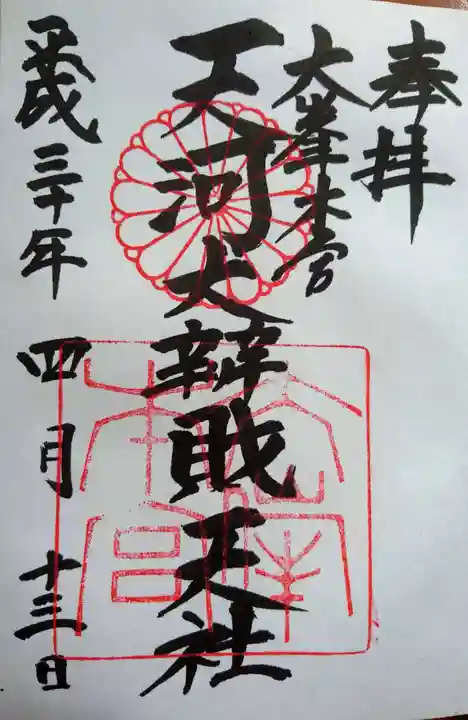 奉拝
大峯本宮
天河大辨財天社
平成三十年
四月
十三日
大峯本宮